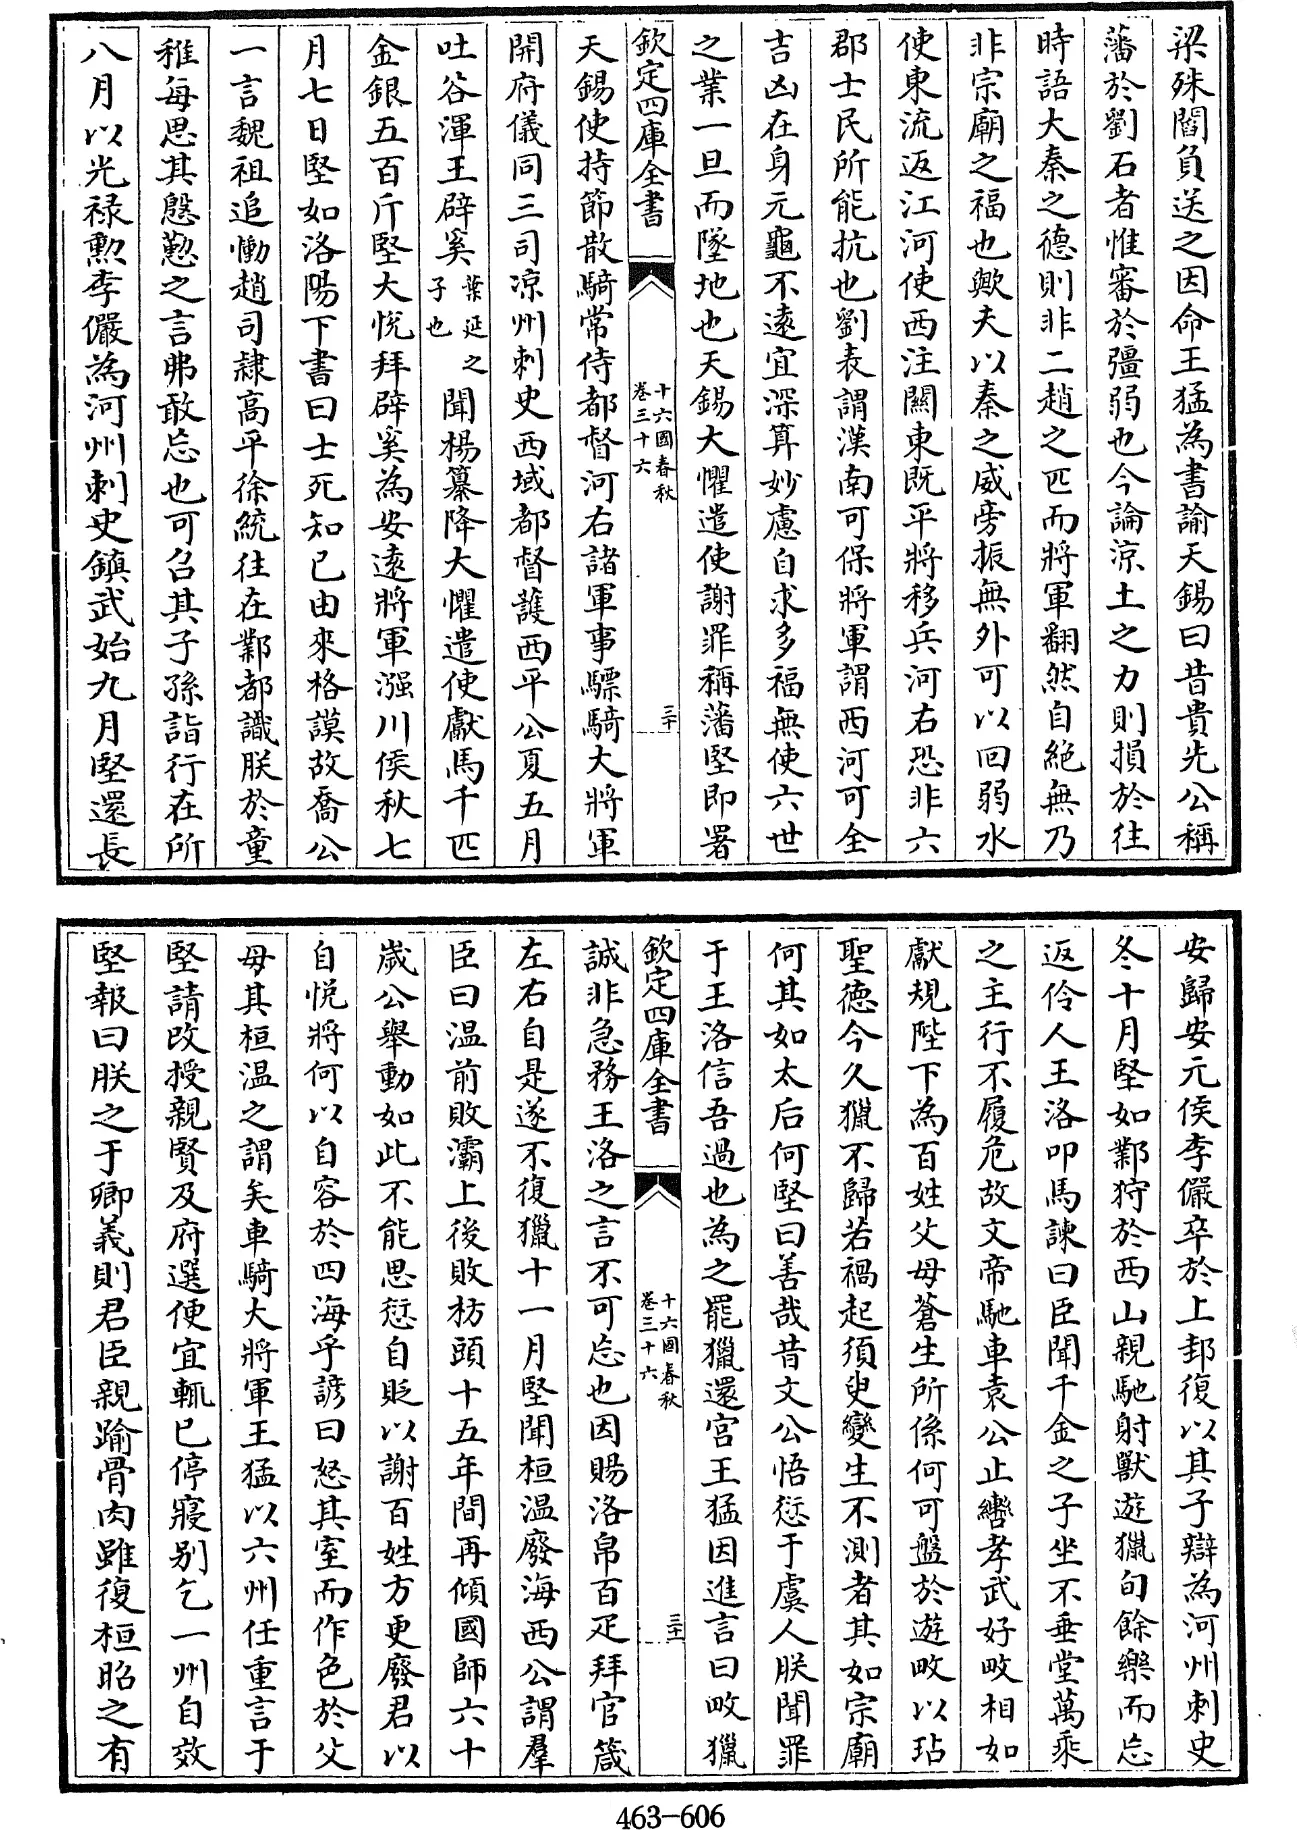 梁殊閻負送之因命王猛為書諭天錫曰昔貴先公稱
藩於劉石者惟審於彊弱也今論涼土之力則損於往
時語大秦之德則非二趙之匹而將軍翻然自絶無乃
非宗廟之福也歟夫以秦之威旁振無外可以回弱水
使東流返江河使西注關東既平將移兵河右恐非六
郡士民所能抗也劉表謂漢南可保將軍謂西河可全
吉凶在身元龜不遠宜深算妙慮自求多福無使六世
之業一旦而墜地也天錫大懼遣使謝罪稱藩堅即署
欽定四庫全書
十六國春秋
卷三十六
三十
天錫使持節散騎常侍都督河右諸軍事驃騎大將軍
開府儀同三司凉州刺史西域都督護西平公夏五月
吐谷渾王辟奚葉延之子也聞楊纂降大懼遣使獻馬千匹
金銀五百斤堅大悅拜辟奚為安遠將軍漒川侯秋七
月七日堅如洛陽下書曰士死知已由來格謨故喬公
一言魏祖追慟趙司隷高平徐統往在鄴都識朕於童
稚每思其慇懃之言弗敢忘也可召其子孫詣行在所
八月以光禄勲李儼為河州刺史鎮武始九月堅還長
安歸安元侯李儼卒於上邽復以其子辯為河州刺史
冬十月堅如鄴狩於西山親馳射獸遊獵旬餘樂而忘
返伶人王洛叩馬諫曰臣聞千金之子坐不垂堂萬乘
之主行不履危故文帝馳車袁公止轡孝武好畋相如
獻規陛下為百姓父母蒼生所係何可盤於遊畋以玷
聖德今久獵不歸若禍起須臾變生不測者其如宗廟
何其如太后何堅曰善哉昔文公悟愆于虞人朕聞罪
于王洛信吾過也為之罷獵還宫王猛因進言曰畋獵
欽定四庫全書
十六國春秋
卷三十六
三十一
誠非急務王洛之言不可忘也因賜洛帛百疋拜官箴
左右自是遂不復獵十一月堅聞桓温廢海西公謂羣
臣曰温前敗灞上後敗枋頭十五年間再傾國師六十
歲公舉動如此不能思愆自貶以謝百姓方更廢君以
自悅將何以自容於四海乎諺曰怒其室而作色於父
母其桓温之謂矣車騎大將軍王猛以六州任重言于
堅請改授親賢及府選便宜輒已停寢别乞一州自效
堅報曰朕之于卿義則君臣親踰骨肉雖復桓昭之有
463-606